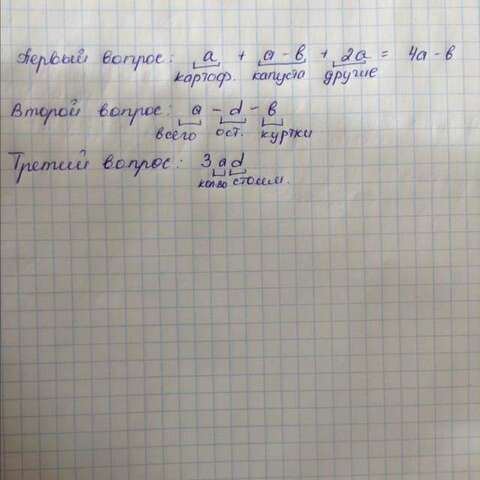 Первый вопрос: a + a - в + 2a = 4a - в
картоф. капуста другие
Второй вопрос: a - d - в
всего ост. куртки
Третий вопрос: 3 a d
кол во стоим.